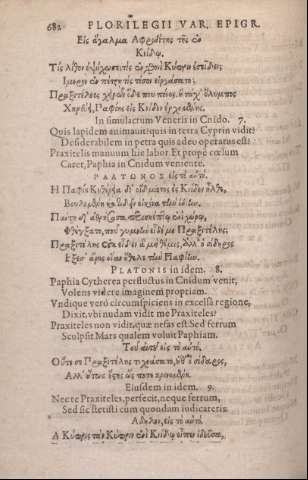 682 FLORILEGII VAR. EPIGR.
Εἰς ἄγαλμα Ἀφροδίτης τῆς ἐν
Κνίδῳ.
Τίς λίθον ἐψύχωσε; τίς ἐν χθονὶ Κύπριν ἐσεῖδεν;
Ἵμερον ἐν πέτρῃ τίς τόσον εἰργάσατο;
Πραξιτέλους χειρῶν ὅδε που πόνος, ἢ τάχ' ὄλυμπος
Χηρεύῃ, Παφίης εἰς Κνίδον ἐρχομένης.
In simulacrum Veneris in Cnido. 7.
Quis lapidem animauit: quis in terra Cyprin vidit?
Desiderabilem in petra quis adeo operatus est?
Praxitelis manuum hic labor. Et prope cœlum
Caret, Paphia in Cnidum veniente.
ΠΛΑΤΩΝΟΣ εἰς τὸ αὐτό.
Ἡ Παφίη Κυθέρεια δι' οἴδματος ἐς Κνίδον ἦλθε,
Βουλομένη κατιδεῖν εἰκόνα τὴν ἰδίαν.
Πάντῃ δ' ἀθρήσασα περισκέπτῳ ἐνὶ χώρῳ,
Φθέγξατο, ποῦ γυμνὴν εἶδέ με Πραξιτέλης;
Πραξιτέλης οὐκ εἶδεν ἃ μὴ θέμις, ἀλλ' ὁ σίδηρος
Ἔξεσ' ἄρης οἵαν ἤθελε τὴν Παφίην.
PLATONIS in idem. 8.
Paphia Cytherea per fluctus in Cnidum venit,
Volens videre imaginem propriam.
Vndique vero circunspiciens in excelsa regione,
Dixit, vbi nudam vidit me Praxiteles?
Praxiteles non vidit, quæ nefas est: Sed ferrum
Sculpsit Mars qualem voluit Paphiam.
Τοῦ αὐτοῦ εἰς τὸ αὐτό.
Οὔτε σε Πραξιτέλης τεχνάσατο, οὔθ' ὁ σίδαρος,
Ἀλλ' οὕτως ἔστης ὥς ποτε κρινομένη.
Eiusdem in idem. 9.
Nec te Praxiteles, perfecit, neque ferrum,
Sed sic stetisti cum quondam iudicareris.
Ἄδηλον, εἰς τὸ αὐτό.
Ἁ Κύπρις τὰν Κύπριν ἐνὶ Κνίδῳ εἶπεν ἰδοῦσα,